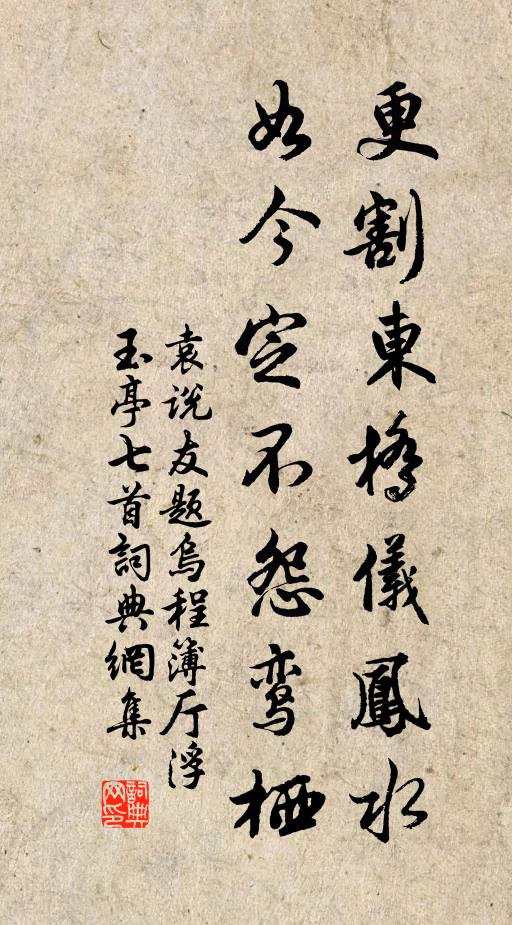 更割東橋儀鳳水
如今定不怨鸾栖
袁说友题烏程簿厅浮
玉亭七首詞典網集
詞典網印